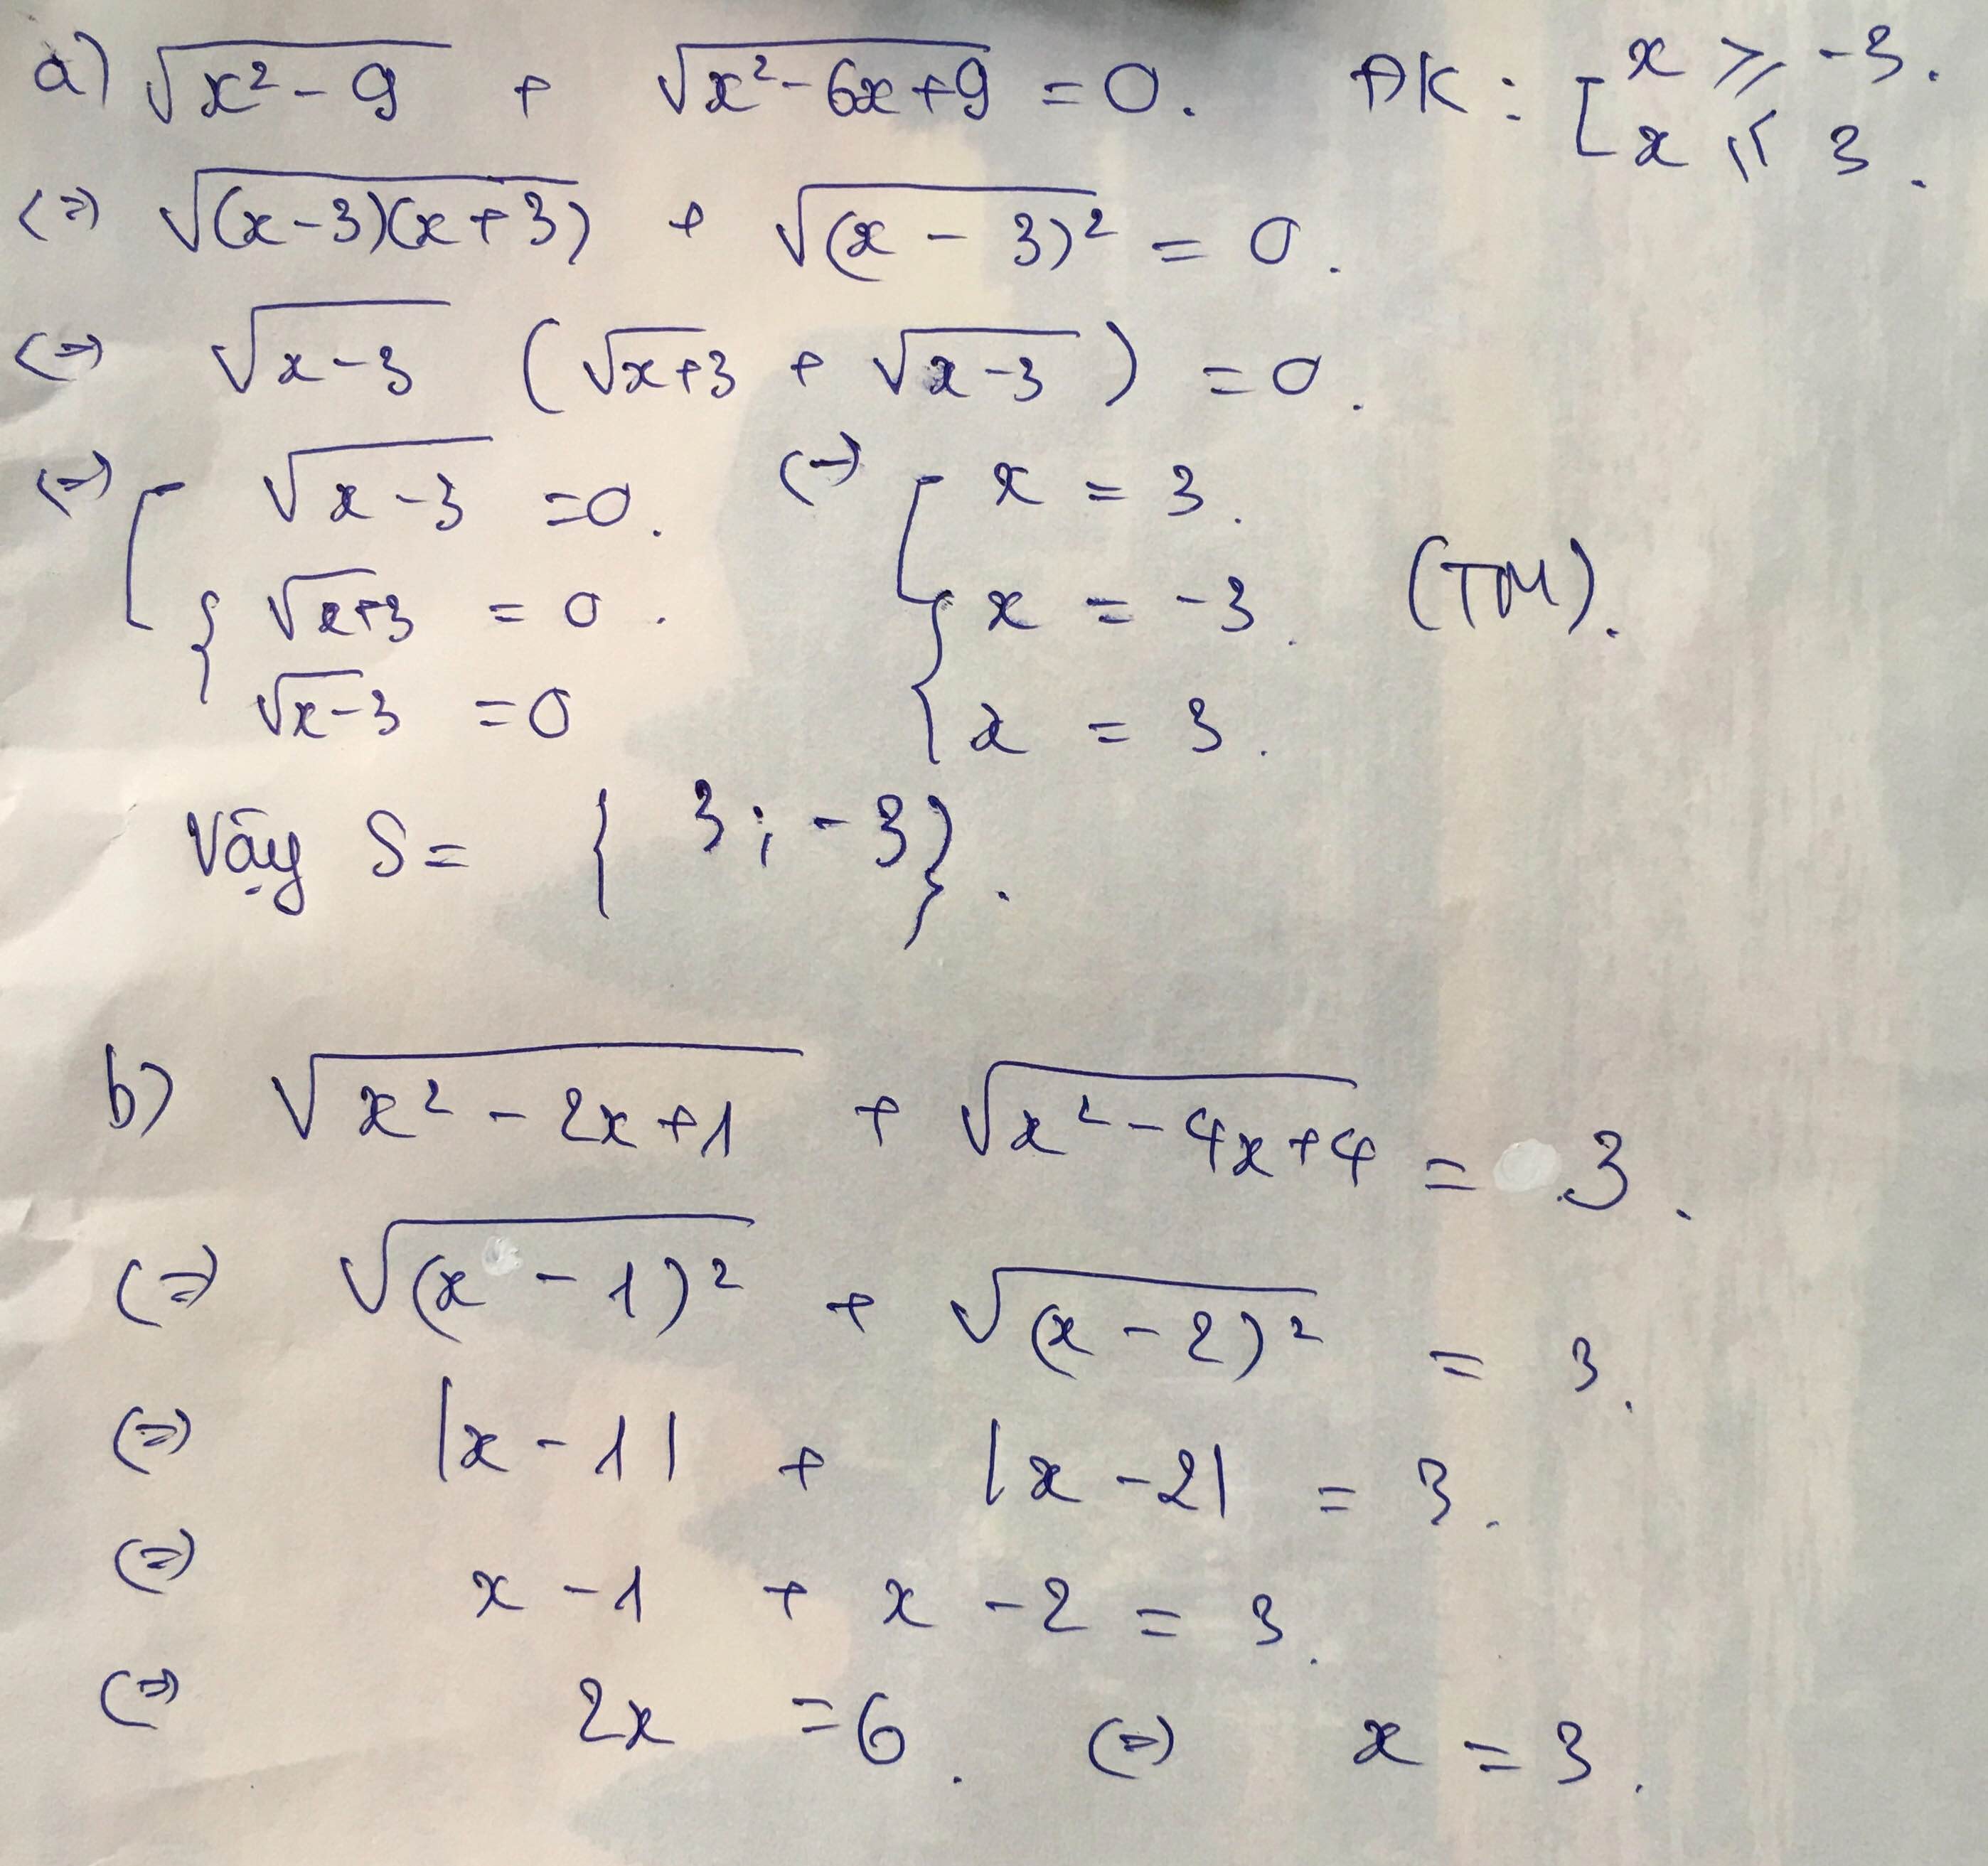 a) √(x² - 9) + √(x² - 6x + 9) = 0. ĐK : [ x ⩾ -3.
x ⩽ 3.
(=) √((x-3)(x+3)) + √((x - 3)²) = 0.
(=) √(x-3) (√(x+3) + √(x-3)) = 0.
(=) [ √(x-3) = 0. (=) [ x = 3.
{ √(x+3) = 0. { x = -3. (TM).
√(x-3) = 0 x = 3.
Vậy S = { 3 ; -3}.
b) √(x² - 2x + 1) + √(x² - 4x + 4) = 3.
(=) √((x - 1)²) + √((x - 2)²) = 3.
(=) |x - 1| + |x - 2| = 3.
(=) x - 1 + x - 2 = 3.
(=) 2x = 6. (=) x = 3.